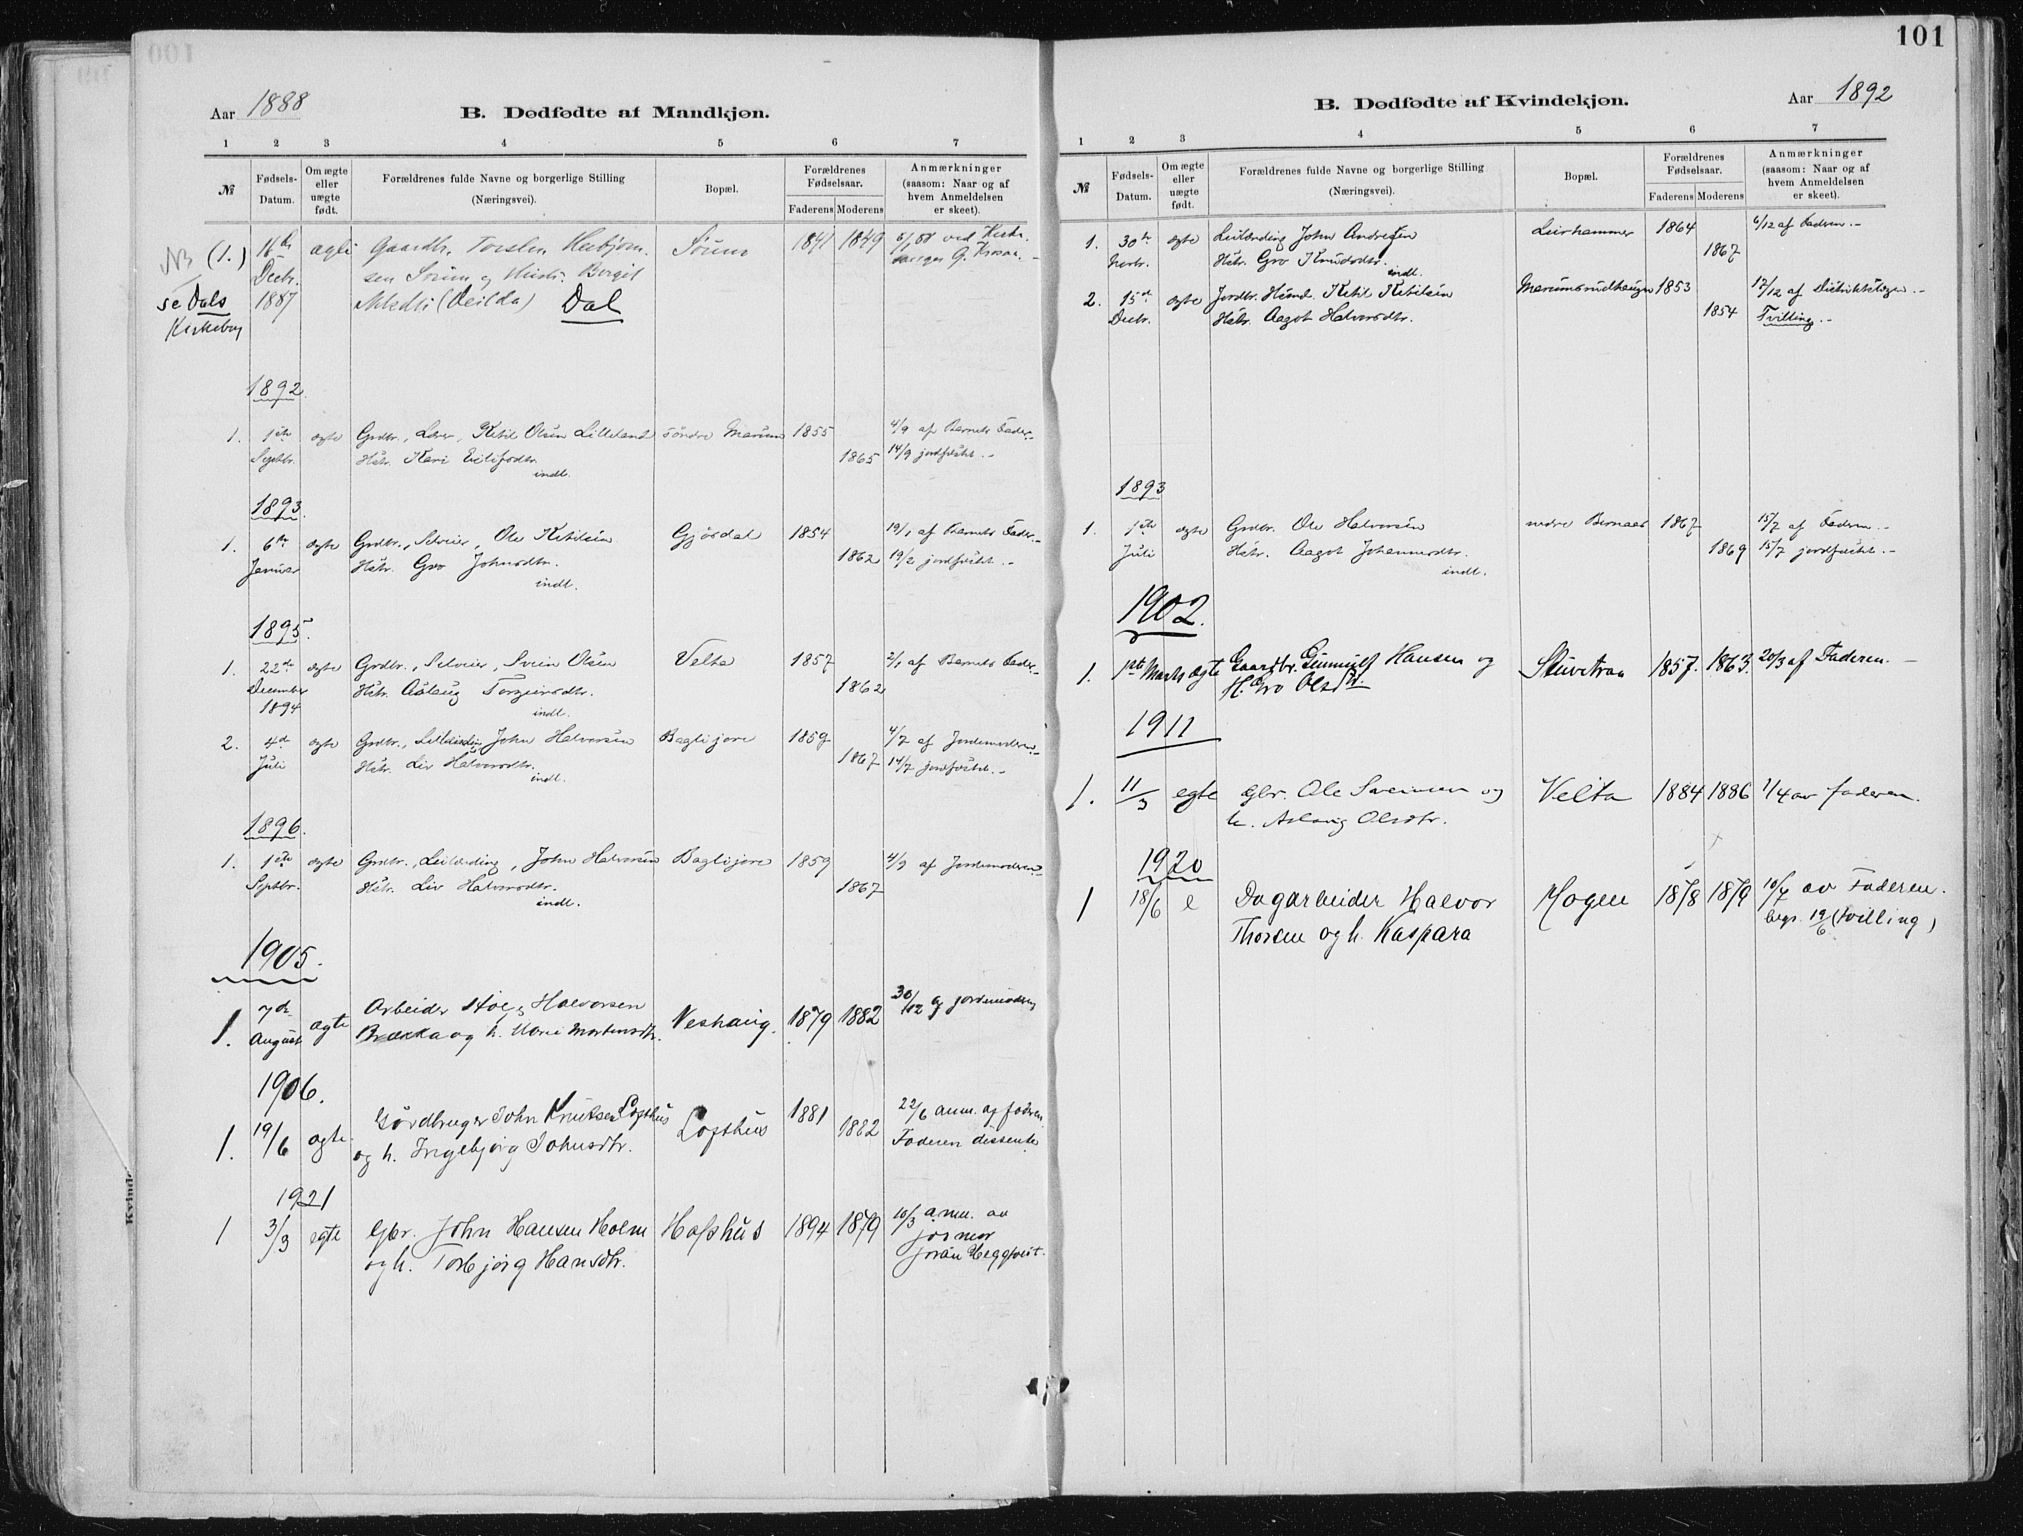 101
Aar 1888
B. Dødfødte af Mandkjøn.
1 2 3 4 5 6 7
№ Fødsels-Datum. Om ægte eller uægte født. Forældrenes fulde Navne og borgerlige Stilling (Næringsvei). Bopæl. Forældrenes Fødselsaar. Faderens Moderens Anmærkninger (saasom: Naar og af hvem Anmeldelsen er skeet).
NB (1.) 16de ægte Gaardbr. Torsten Herbjørn- Sørum 1841 1849 6/1 88 ved Kirke-
Decbr. sen Sørum og Hustr. Bergit
se Dals 1887 Dal
Kirkebog
1892
1. 1ste ægte Grdbr., Lærer, Ketil Olsen Lilleland søndre Mærum 1855 4/9 af Barnets Fader.-
Septbr. Hstr. Kari Eilifsdtr. 1865 14/9 jordfæstet.-
indl.
1893.
1. 6te ægte Grdbr., Selveier, Ole Ketilsen Gjørdal 1854 19/1 af Barnets Fader.-
Januar Hstr. Gro Johnsdtr. 1862 19/2 jordfæstet.-
indl.
1895.
1. 22de ægte Grdbr., Selveier, Svein Olsen Velta 1857 2/1 af Barnets Fader.-
December Hstr. Aslaug Torgeirsdtr. 1862
1894 indl.
2. 4de ægte Grdbr., Leilænding John Halvorsen Baglijore 1859 4/7 af Jordemoderen.-
Juli Hstr. Liv Halvorsdtr. 1867 14/7 jordfæstet.-
indl.
1896.
1. 1ste ægte Grdbr., Leilænding, John Halvorsen Baglijore 1859 4/9 af Jordemoderen.-
Septbr. Hstr. Liv Halvorsdtr. 1867
indl.
1905.
1. 7de ægte Arbeider Halvorsen Neshaug. 1879 1882 30/12 af jordemoderen
August Brækka og h. Marie Mortensdtr.
1906.
1. 19/6 ægte. Gårdbruger John Knutsen Lofthus Lofthus 1881 22/6 anm. af faderen.
og h. Ingebjørg Johnsdtr. 1882 Faderen dissenter
1921
1 3/3 egte Gbr. John Hansen Holm Hafshus 1894 1879 10/3 anm. av
og h. Torbjørg Hansdtr. jormor
Aar 1892
B. Dødfødte af Kvindekjøn.
1 2 3 4 5 6 7
№ Fødsels-Datum. Om ægte eller uægte født. Forældrenes fulde Navne og borgerlige Stilling (Næringsvei). Bopæl. Forældrenes Fødselsaar. Faderens Moderens Anmærkninger (saasom: Naar og af hvem Anmeldelsen er skeet).
1. 30te ægte Leilænding John Andresen Leirhammer 1864 6/12 af Faderen.-
Novbr. Hstr. Gro Knudsdtr. 1867
indl.
2. 15de ægte Jordbr. Husmd. Ketil Ketilsen Mærumsrudhaugen 1853 17/12 af Distriktslægen.-
Decbr. Hstr. Aagot Halvorsdtr. 1854 Tvilling.-
1893
1. 1ste ægte Grdbr. Ole Halvorsen nedre Bernaas 1867 15/7 af Faderen.-
Juli Hstr. Aagot Johannesdtr. 1869 15/7 jordfæstet.-
indl.
1902.
1. 1ste Marts ægte Gaardbr. Gunnulf Hansen og Stuvetraa 1857. 1863. 20/3 af Faderen.-
H. Gro Olsdtr.
1911
1. 11/3 egte gbr. Ole Sveinsen og Velta 1884 1886 1/4 av faderen.
h. Aslaug Olsdtr.
1920
1 18/6 e Dagarbeider Halvor Mogen 1878 1879 10/7 av Faderen.
Thorsen og h. Kaspara begr. 19/6 (tvilling)